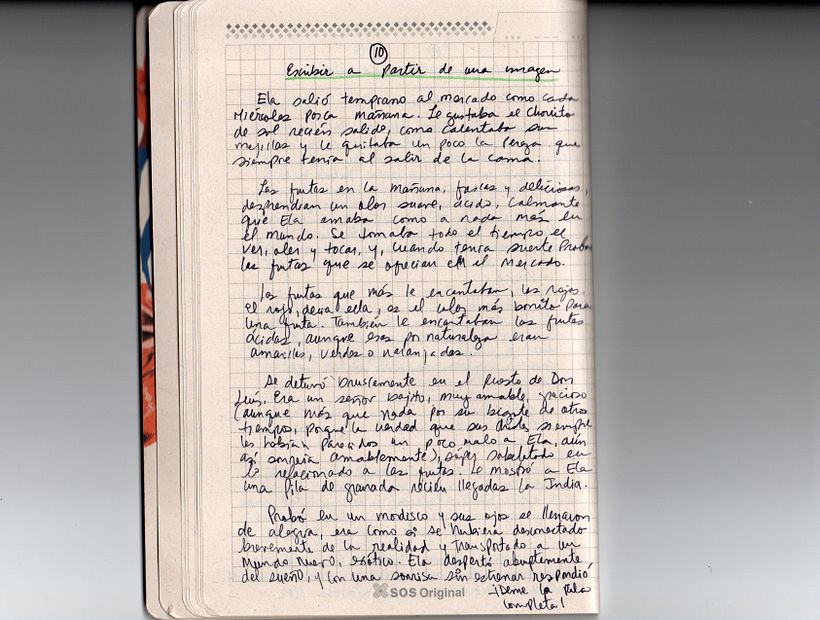 10
Escribir a partir de una imagen
Ela salió temprano al mercado como cada
Miércoles por la mañana. Le gustaba el chorrito
de sol recién salido, como calentaba sus
mejillas y le quitaba un poco la pereza que
siempre tenía al salir de la cama.
Las frutas en la mañana, frescas y deliciosas,
desprendían un olor suave, ácido, calmante
que Ela amaba como a nada más en
el mundo. Se tomaba todo el tiempo el
ver, oler y tocar, y, cuando tenía suerte probar
las frutas que se ofrecían en el mercado.
Las frutas que más le encantaban, las rojas.
el rojo, decía ella, es el color más bonito para
una fruta. También le encantaban las frutas
ácidas, aunque esas por naturaleza eran
amarillas, verdes o naranjadas.
Se detuvo bruscamente en el puesto de Don
Luis. Era un señor bajito, muy amable, gracioso
(aunque más que nada por su bigote de otros
tiempos, porque la verdad que sus chistes siempre
les habían parecidos un poco malo a Ela, aún
así sonreía amablemente), súper sabelotodo en
lo relacionado a las frutas. Le mostró a Ela
una pila de granada recién llegadas la India.
Probó en un modisco y sus ojos se llenaron
de alegría, era como si se hubiera desconectado
brevemente de la realidad y transportado a un
mundo nuevo, exótico. Ela despertó abruptamente
del sueño, y con una sonrisa sin estrenar respondió,
-¡Deme la pila
completa!
SOS Original